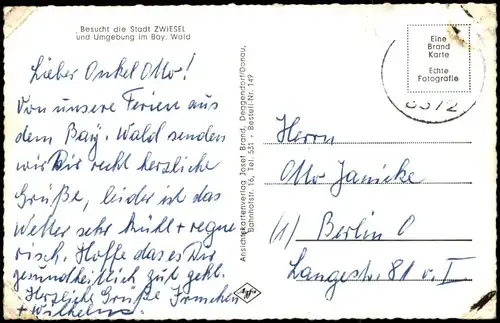 Besucht die Stadt ZWIESEL
und Umgebung im Bay. Wald
Lieber Onkel Otto!
Von unsere Ferien aus
dem Bay. Wald senden
wir Dir recht herzliche
Grüße, leider ist das
Wetter sehr kühl + regne
risch. Hoffe das es Dir
gesundheitlich gut geht.
Herzliche Grüße Irmchen
+ Wilhelm
Ansichtskartenverlag Josef Brand, Deggendorf/Donau,
Bahnhofstr. 16, Tel. 551 - Bestell-Nr. 149
Eine
Brand
Karte
Echte
Fotografie
8372
Herrn
Otto Janicke
(1) Berlin O
Langestr. 81 v. I